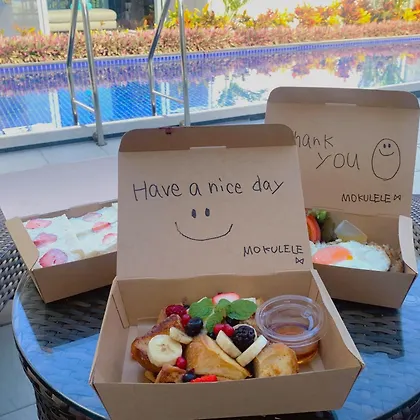 Have a nice day
MOKULELE
Thank
YOU
MOKULELE